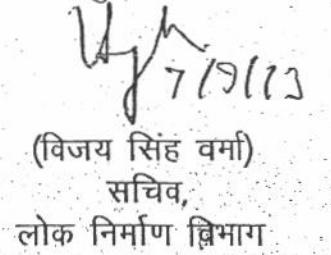 7/9/13
(विजय सिंह वर्मा)
सचिव,
लोक निर्माण विभाग